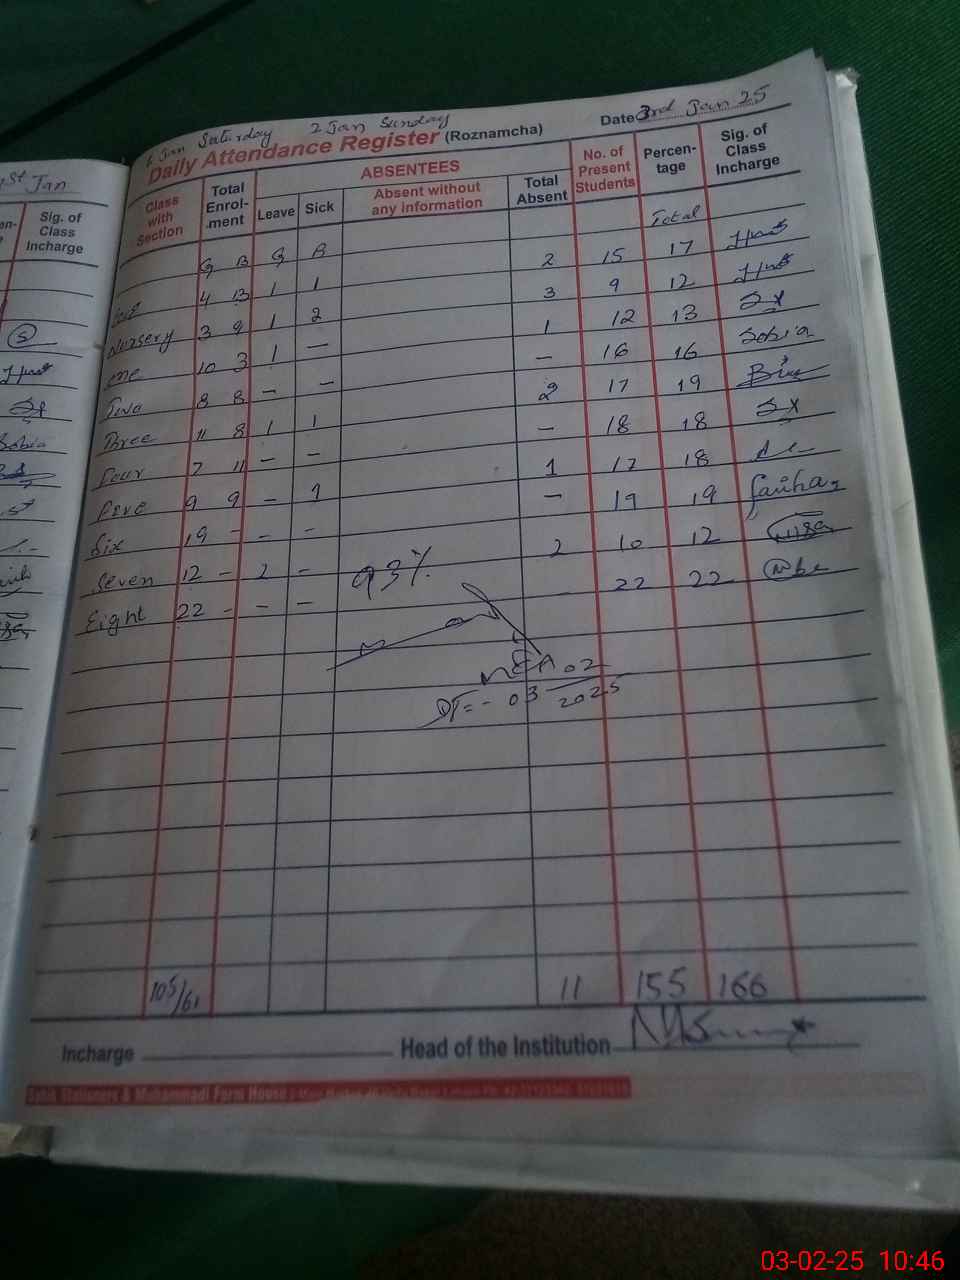 Jan Saturday 2 Jan Sunday
Date 3rd Jan 25
Daily Attendance Register (Roznamcha)
1st Jan
Sig. of Class Incharge
Class with Section
Total Enrol-ment
ABSENTEES
Leave
Sick
Absent without any information
Total Absent
No. of Present Students
Percen-tage
Sig. of Class Incharge
Total
G B G B
4 13 1 1 2 15 17
Nursery 3 9 1 2 3 9 12
One 10 3 1 — 1 12 13
Two 8 8 – – – 16 16 Sobia
Three 11 8 1 1 2 17 19
Four 7 11 – – – 18 18
Five 9 9 – 1 1 17 18
Six 19 – – – – 19 19 Fariha
Seven 12 – 2 – 2 10 12
Eight 22 – – – 22 22
93%
MEA 02
DT=- 03 2025
105/61 11 155 166
Incharge
Head of the Institution
03-02-25 10:46